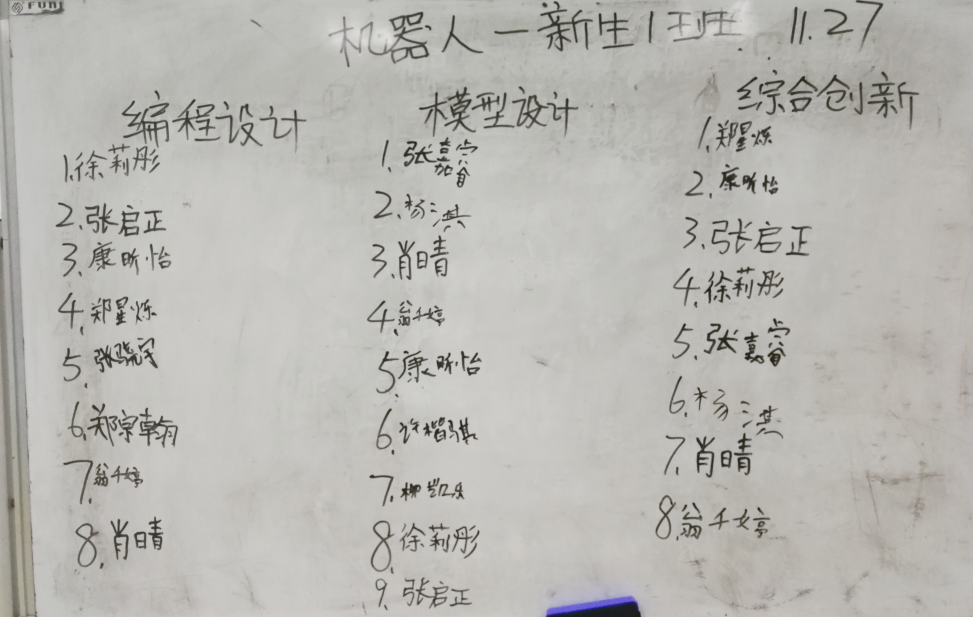 机器人一新生1班 11.27
编程设计
1.徐莉彤
2.张启正
3.康昕怡
4.郑星烁
5.张骁宇
6.郑宗翰
7.翁千婷
8.肖晴
模型设计
1.张嘉睿
2.杨淇
3.肖晴
4.翁千婷
5.康昕怡
6.许楷骐
7.柳凯乐
8.徐莉彤
9.张启正
综合创新
1.郑星烁
2.康昕怡
3.张启正
4.徐莉彤
5.张嘉睿
6.杨淇
7.肖晴
8.翁千婷